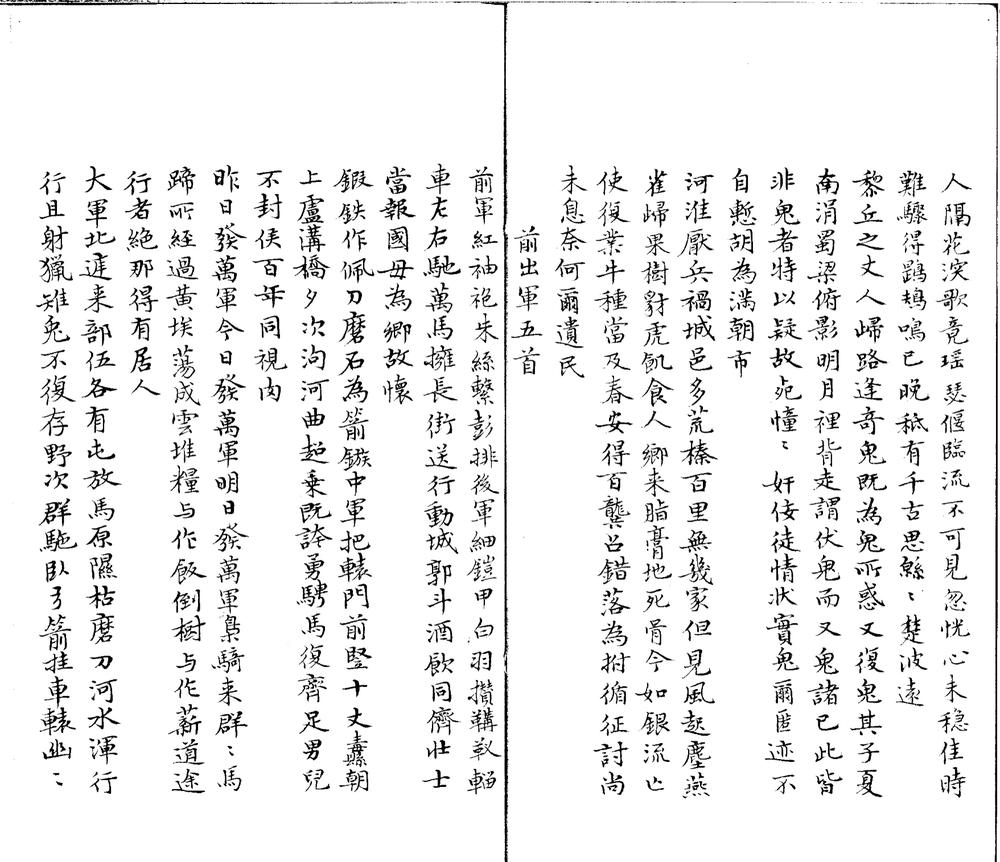 人隔花深歌竟瑶瑟偃臨流不可見忽恍心未穏佳時
難驟得鵾鴂鳴已晚秪有千古思緜〻楚波遠
黎丘之丈人歸路逢奇鬼既為鬼所惑又復鬼其子夏
南涓蜀梁俯影明月裡背走謂伏鬼而又鬼諸已此皆
非鬼者特以疑故死憧〻奸佞徒情狀實鬼爾匿迹不
自慙胡為滿朝市
河淮厭兵禍城邑多荒榛百里無幾家但見風起塵燕
雀歸果樹豺虎飢食人鄉来脂膏地死骨今如銀流亾
使復業牛種當及春安得百龔召錯落為拊循征討尚
未息奈何爾遺民
前出軍五首
前軍紅袖袍朱絲繫彭排後軍細鎧甲白羽攢鞲靫輜
車左右馳萬馬擁長街送行動城郭斗酒飲同儕壯士
當報國毋為鄉故懷
鍜鉄作佩刀磨石為箭鏃中軍把轅門前竪十丈纛朝
上盧溝橋夕次泃河曲超乗既誇勇騁馬復齊足男兒
不封侯百年同視肉
昨日發萬軍今日發萬軍明日發萬軍梟騎来群〻馬
蹄所經過黄埃蕩成雲堆糧与作飯倒樹与作薪道途
行者絶那得有居人
大軍北邊来部伍各有屯放馬原隰枯磨刀河水渾行
行且射獵雉兎不復存野次群駞臥弓箭挂車轅幽〻